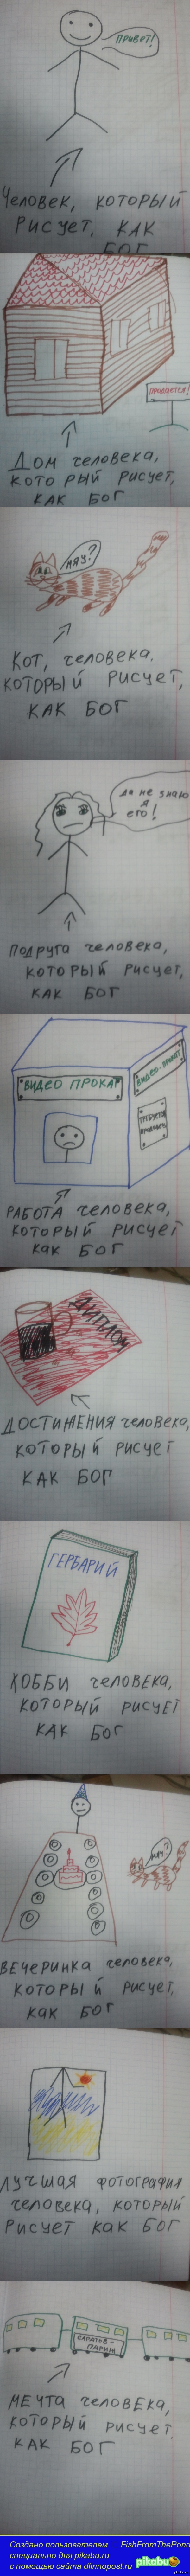 ПРИВЕТ!
Человек, который
рисует, КАК
БОГ
ПРОДАЕТСЯ!
Дом человека,
который рисует,
КАК БОГ
МЯУ?
Кот, человека,
который рисует,
КАК БОГ
да не знаю
я
его!
Подруга человека,
который рисует,
КАК БОГ
ВИДЕО ПРОКАТ
ВИДЕО-ПРОКАТ
ТРЕБУЕТСЯ
РАБОТА человека,
который рисует
как БОГ
ДИПЛОМ
ДОСТИЖЕНИЯ человека,
который рисует
КАК БОГ
ГЕРБАРИЙ
ХОББИ человека,
который рисует
КАК БОГ
ВЕчеринка человека,
который рисует,
как БОГ
ЛУЧШАЯ фотография
человека, который
рисует как БОГ
САРАТОВ-
ПАРИЖ
МЕЧТА человека,
который рисует,
КАК БОГ
Создано пользователем FishFromThePond
специально для pikabu.ru
с помощью сайта dlinnopost.ru pikabu